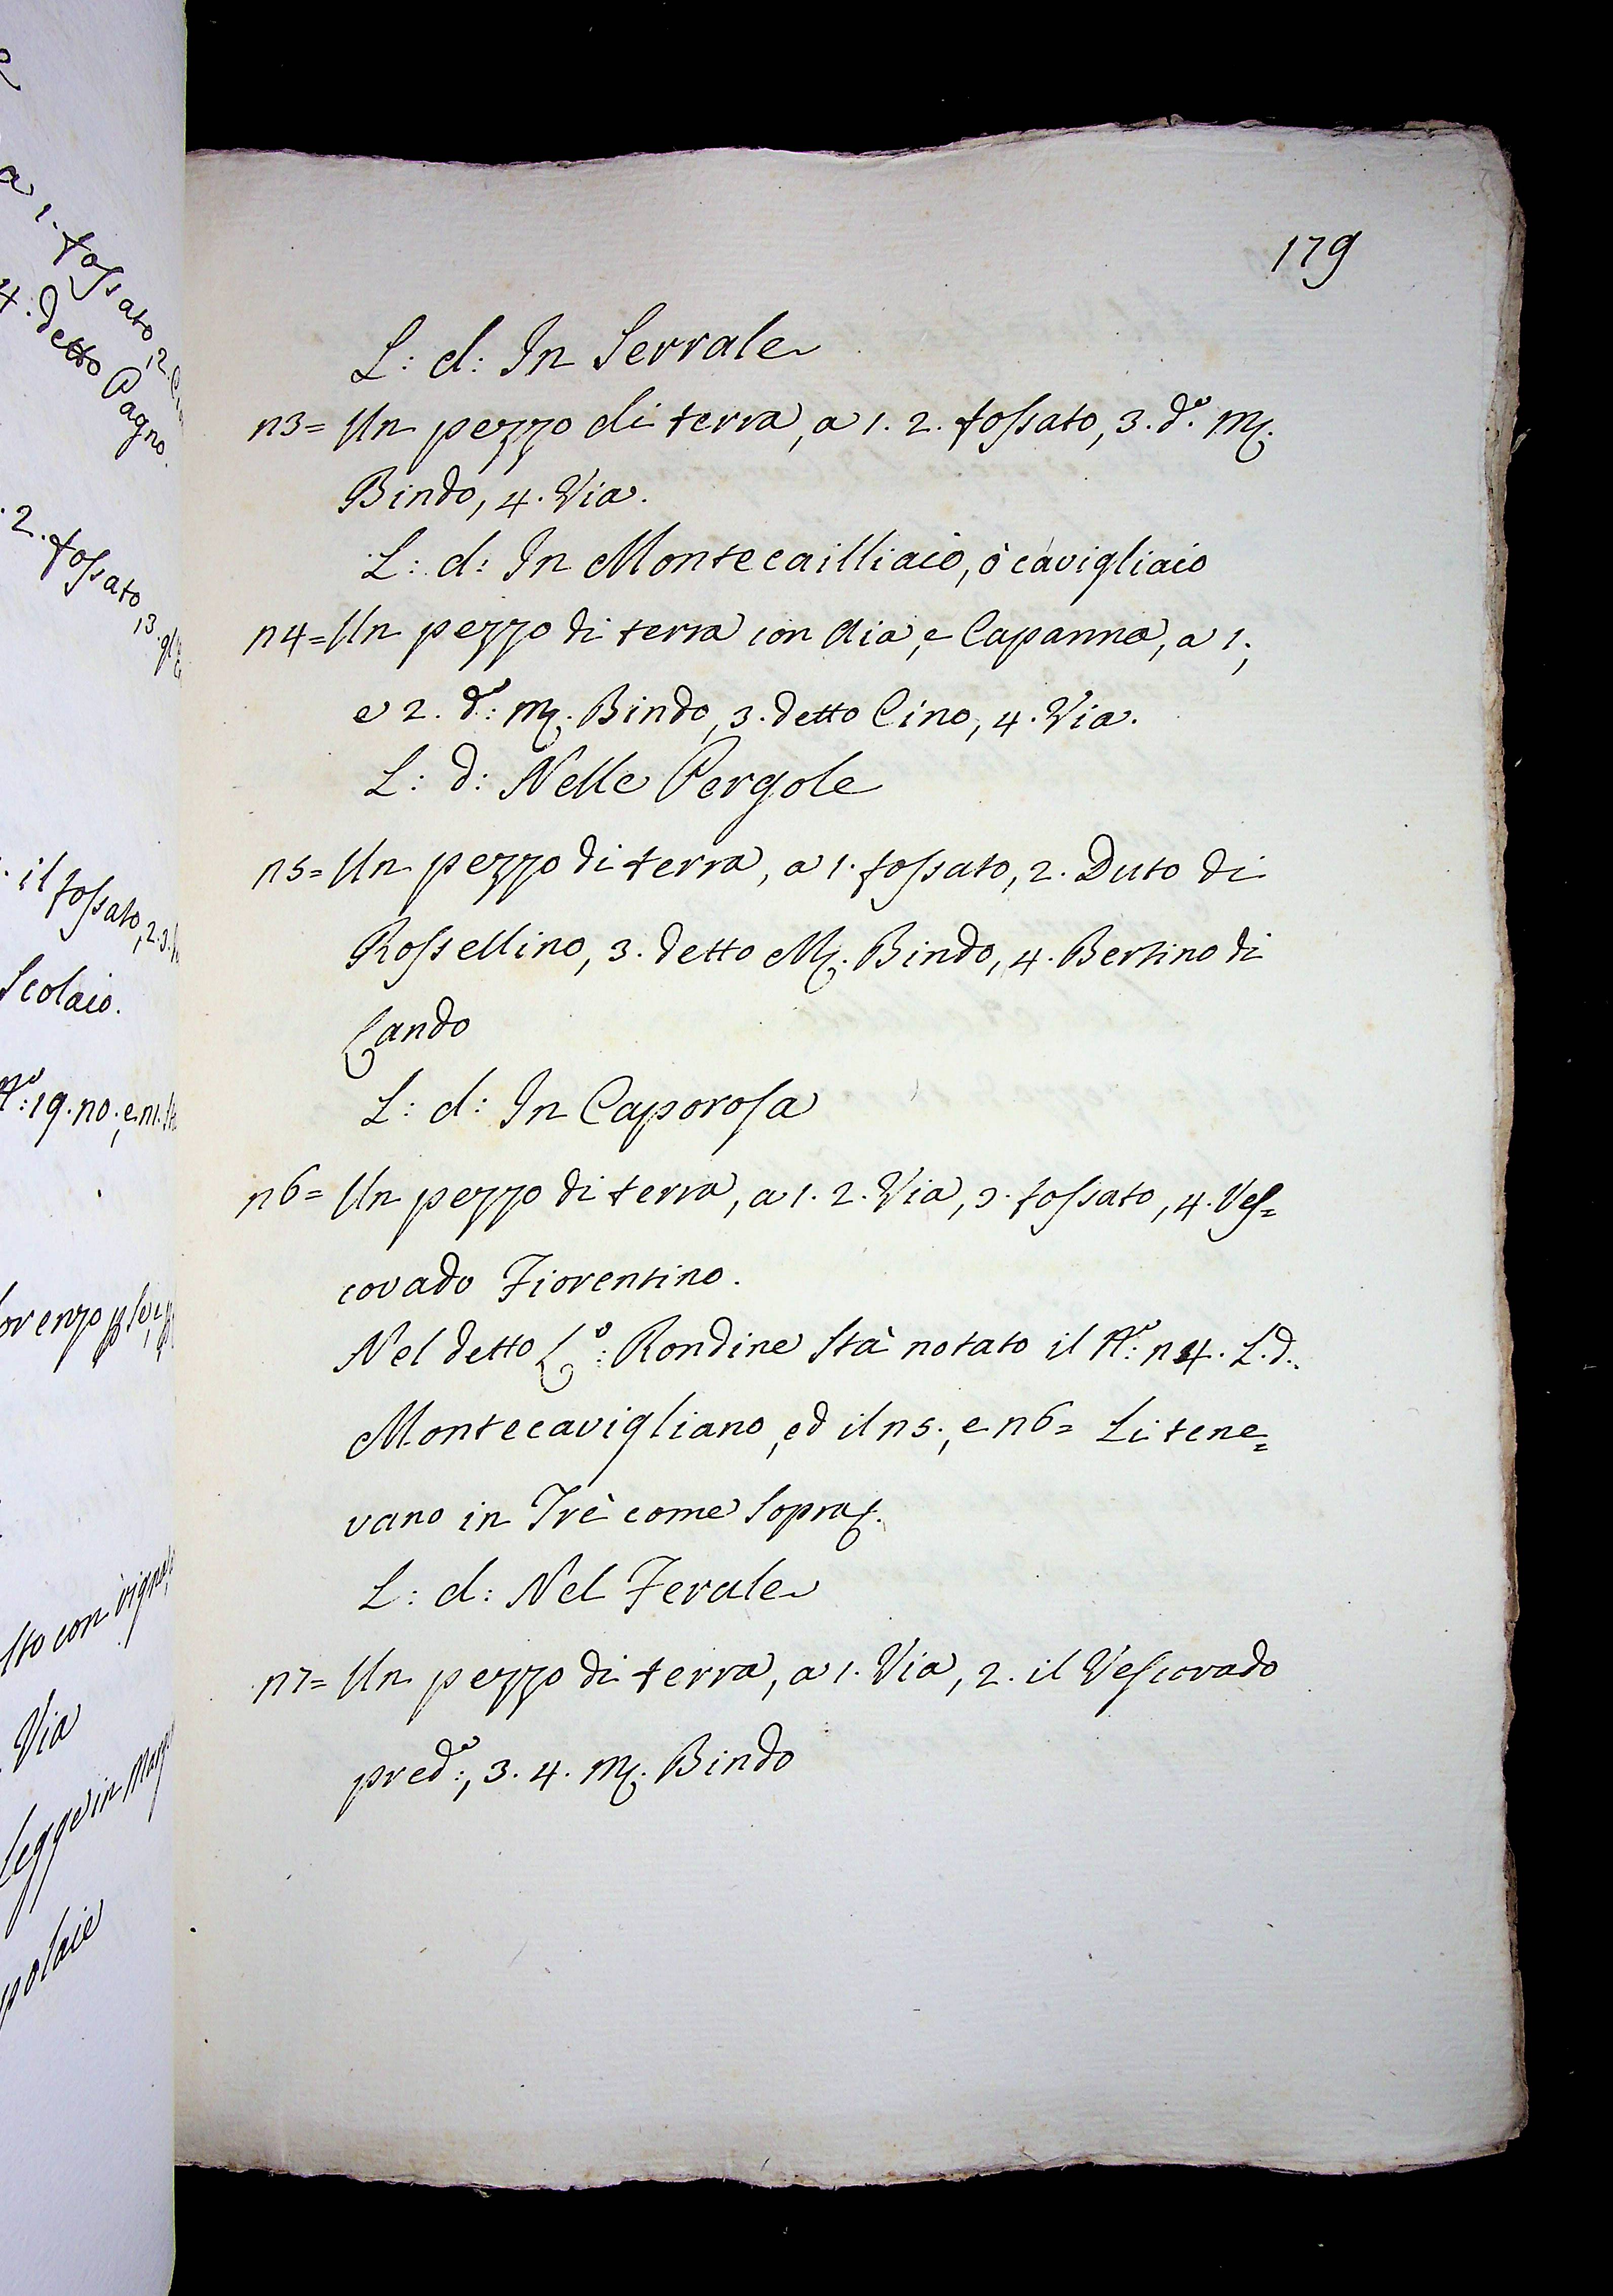 a 1. fossato, 2.
4. detto Pagno.
. 2. fossato, 3.
. il fossato, 2. 3.
Scolaio.
Via
legge in
179
L: d: In Serrale
n3= Un pezzo di terra, a 1. 2. fossato, 3. d.º M.
Bindo, 4. Via.
L: d: In Montecailliaio, ò cavigliaio
n4= Un pezzo di terra con Aia, e Capanna, a 1.,
e 2. d.º: M. Bindo, 3. detto Cino, 4. Via.
L: d: Nelle Pergole
n5= Un pezzo di terra, a 1. fossato, 2. Duto di
Rossellino, 3. detto M. Bindo, 4. Bertino di
Lando
L: d: In Caporosa
n6= Un pezzo di terra, a 1. 2. Via, 3. fossato, 4. Ves=
covado Fiorentino.
Nel detto L.º: Rondine Stà notato il N.º: n4. L. d.
Montecavigliano, ed il n5., e n6= Li tene=
vano in Trè come Sopra.
L: d: Nel Ferale
n7= Un pezzo di terra, a 1. Via, 2. il Vescovado
pred.º:, 3. 4. M. Bindo